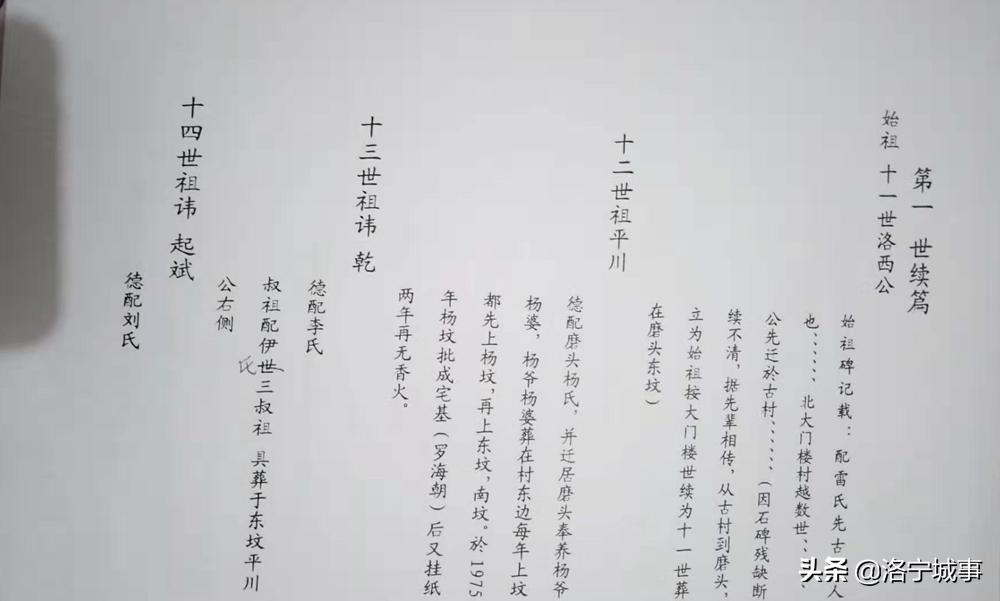 第一 世续篇
始祖 十一世洛西公
始祖碑记载：配雷氏先古
人
也、、、、、、北大门楼村越数世、、
公先迁於古村、、、、、、（因石碑残缺断
续不清，据先辈相传，从古村到磨头，
立为始祖按大门楼世续为十一世葬
在磨头东坟）
十二世祖平川
德配磨头杨氏，并迁居磨头奉养杨爷
杨婆，杨爷杨婆葬在村东边每年上坟
都先上杨坟，再上东坟，南坟。於1975
年杨坟批成宅基（罗海朝）后又挂纸
两年再无香火。
十三世祖讳 乾
德配李氏
叔祖配伊世三叔祖 具葬于东坟平川
氏
公右侧
十四世祖讳 起斌
德配刘氏
头条 @洛宁城事